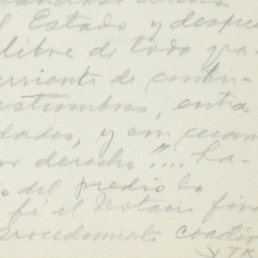 el Estado y despue
libre de todo gra-
erviente de contin-
estumbres, entra
dades, y con cuan
or derecho"... La-
o del predio la
fé el Notario fir
procedimiento coacti